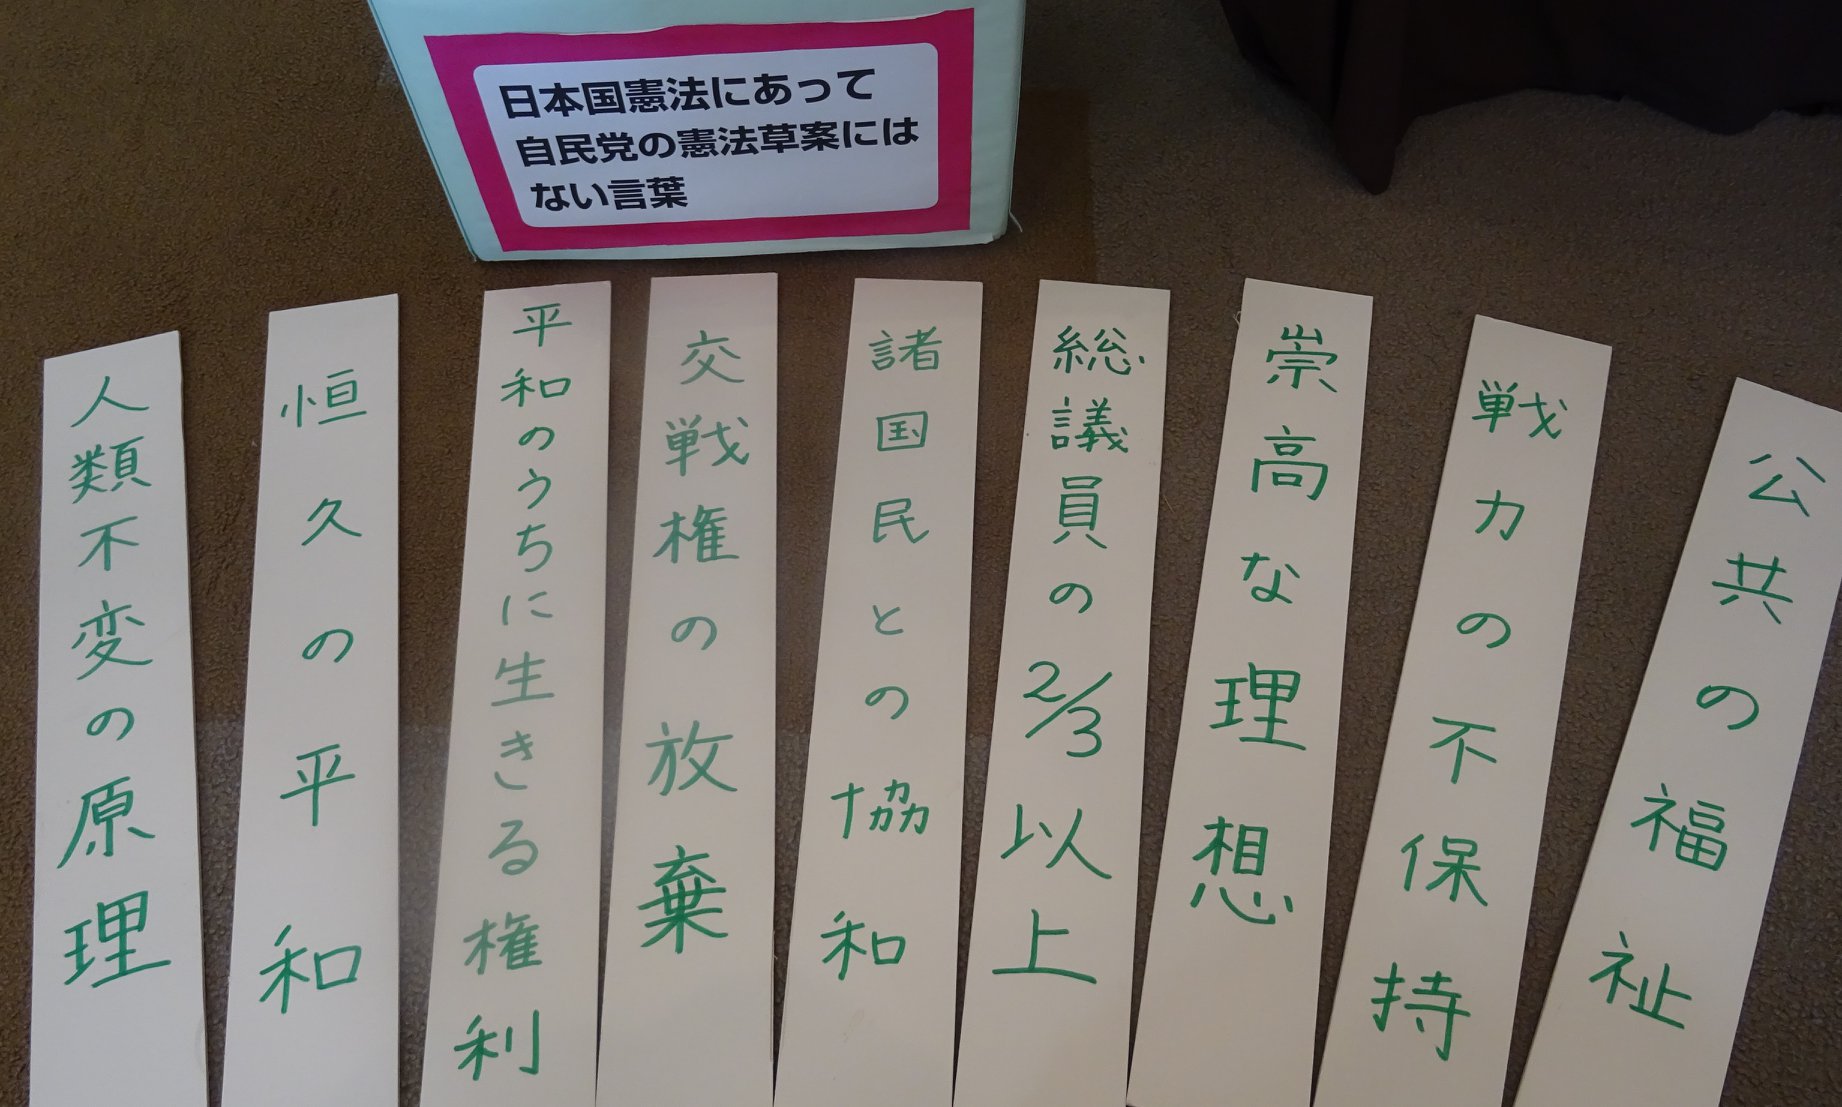 日本国憲法にあって
自民党の憲法草案には
ない言葉
人類不変の原理
恒久の平和
平和のうちに生きる権利
交戦権の放棄
諸国民との協和
総議員の2/3以上
崇高な理想
戦力の不保持
公共の福祉